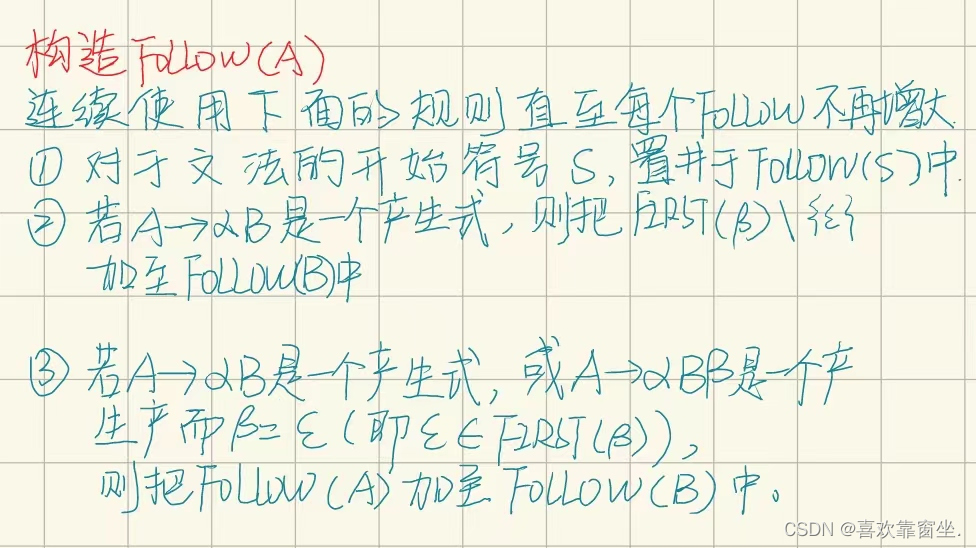 构造Follow(A)
连续使用下面的规则直至每个Follow不再增大.
① 对于文法的开始符号S,置井于Follow(S)中.
② 若A→αB是一个产生式,则把FIRST(β)\{ε}
加至Follow(B)中
③ 若A→αB是一个产生式,或A→αBβ是一个产
生产而β=ε(即ε∈FIRST(β)),
则把Follow(A)加至Follow(B)中。
CSDN @喜欢靠窗坐.